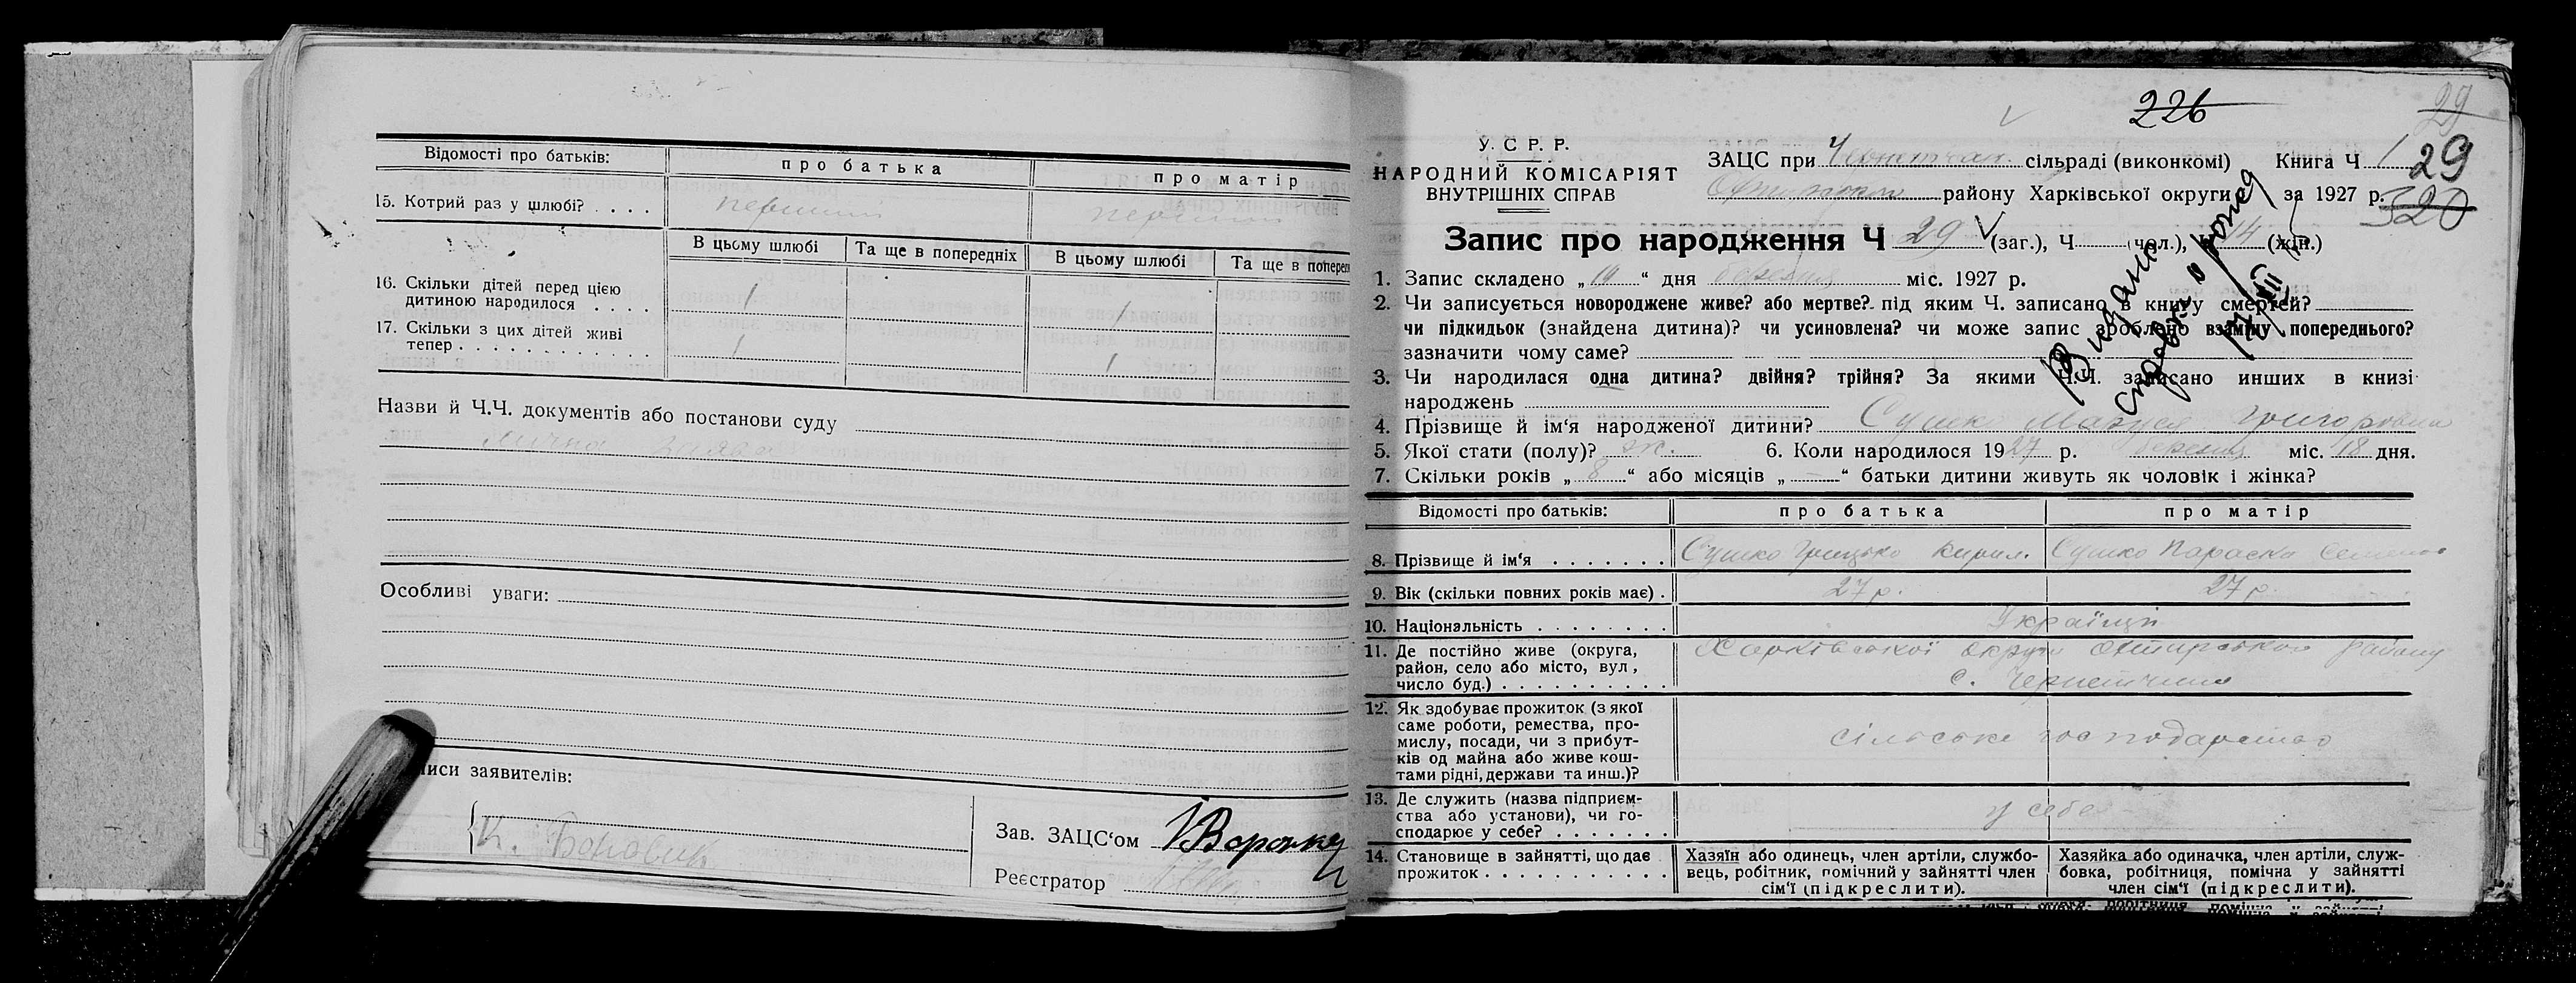 Відомості про батьків:
про батька
про матір
15. Котрий раз у шлюбі? . . . .
перший
перший
В цьому шлюбі
Та ще в попередніх
В цьому шлюбі
Та ще в попере
16. Скільки дітей перед цією
дитиною народилося . . . .
1
1
17. Скільки з цих дітей живі
тепер . . . . . . . . . . . .
1
1
Назви й Ч.Ч. документів або постанови суду
лична заява
Особливі уваги:
писи заявителів:
К.
Зав. ЗАЦС'ом
Реєстратор
226
29
29
320
У. С. Р. Р.
НАРОДНИЙ КОМІСАРІЯТ
ВНУТРІШНІХ СПРАВ
ЗАЦС при сільраді (виконкомі) Книга Ч 1
району Харківської округи за 1927 р.
Запис про народження Ч 29 (заг.), Ч (чол.), Ч 14 (жін.)
Видана
справка о рожд
1. Запис складено „ “ дня березня міс. 1927 р.
2. Чи записується новороджене живе? або мертве? під яким Ч. записано в книгу смертей?
чи підкидьок (знайдена дитина)? чи усиновлена? чи може запис зроблено взаміну попереднього?
зазначити чому саме?
3. Чи народилася одна дитина? двійня? трійня? За якими Ч.Ч. записано инших в книзі
народжень
4. Прізвище й ім'я народженої дитини? Сушк Григоровна
5. Якої стати (полу)? ж. 6. Коли народилося 1927 р. березня міс. 18 дня.
7. Скільки років „ 8 “ або місяців „ — “ батьки дитини живуть як чоловік і жінка?
Відомості про батьків:
про батька
про матір
8. Прізвище й ім'я . . . . . . .
Сушко Грицько Кирил.
Сушко Параска Семенов
9. Вік (скільки повних років має) .
27 р.
27 р.
10. Національність . . . . . . . .
Українці
11. Де постійно живе (округа,
район, село або місто, вул.,
число буд.) . . . . . . . . . .
Харківської округи Охтирського району
с. Чернеччина
12. Як здобуває прожиток (з якої
саме роботи, ремества, про-
мислу, посади, чи з прибут-
ків од майна або живе кош-
тами рідні, держави та инш.)?
сільське господарство
13. Де служить (назва підприєм-
ства або установи), чи го-
сподарює у себе? . . . . . . .
у себе
14. Становище в зайнятті, що дає
прожиток . . . . . . . . . . .
Хазяїн або одинець, член артіли, службо-
вець, робітник, помічний у зайнятті член
сім'ї (підкреслити).
Хазяйка або одиначка, член артіли, служ-
бовка, робітниця, помічна у зайнятті
член сім'ї (підкреслити).